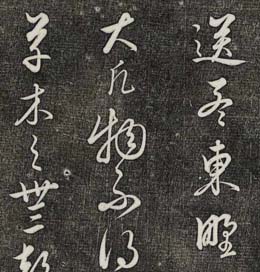 送孟東野
大凡物不得
草木之無聲